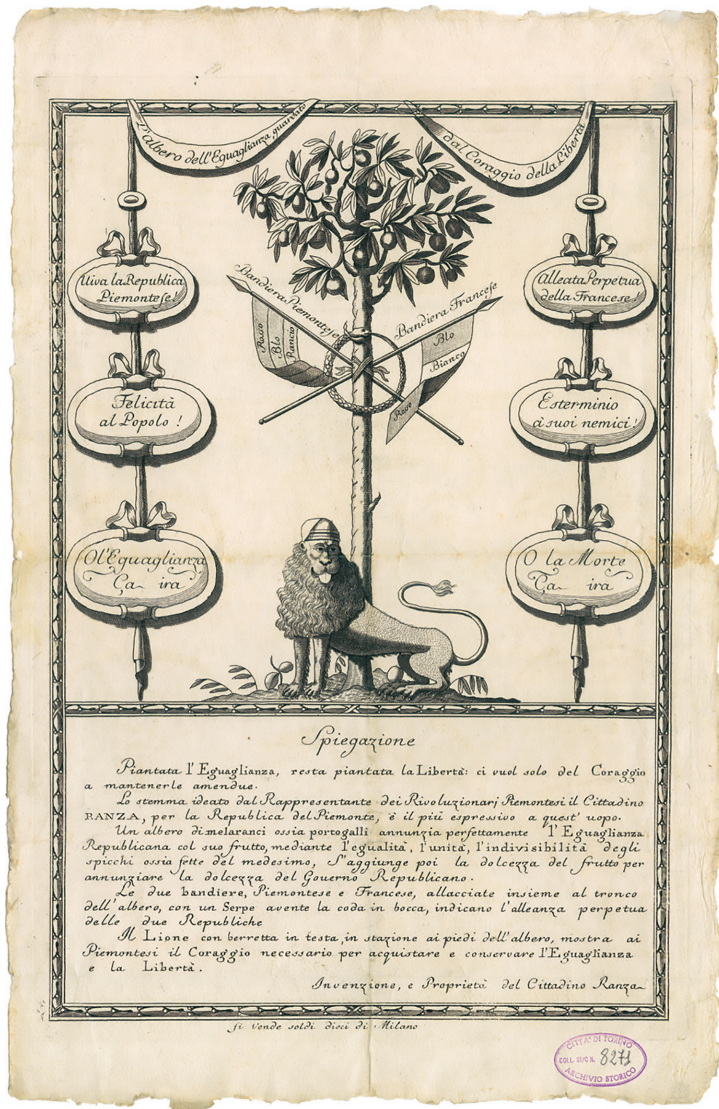 L'albero dell'Eguaglianza, guardato
dal Coraggio della Libertà
Uiva la Republica
Piemontese!
Alleata Perpetua
della Francese!
Bandiera Piemontese
Rosso
Blo
Rancio
Bandiera Francese
Blo
Bianco
Roso
Felicità
al Popolo!
Esterminio
a' suoi nemici!
O l'Eguaglianza
Ça ira
O la Morte
Ça ira
Spiegazione
Piantata l'Eguaglianza, resta piantata la Libertà: ci vuol solo del Coraggio
a mantenerle amendue.
Lo stemma ideato dal Rappresentante dei Rivoluzionarj Piemontesi il Cittadino
RANZA, per la Republica del Piemonte, è il più espressivo a quest' uopo.
Un albero di melaranci ossia portogalli annunzia perfettamente l'Eguaglianza
Republicana col suo frutto, mediante l'egualità, l'unità, l'indivisibilità degli
spicchi ossia fette del medesimo, S'aggiunge poi la dolcezza del frutto per
annunziare la dolcezza del Governo Republicano.
Le due bandiere, Piemontese e Francese, allacciate insieme al tronco
dell'albero, con un Serpe avente la coda in bocca, indicano l'alleanza perpetua
delle due Republiche
Il Lione con berretta in testa, in stazione ai piedi dell'albero, mostra ai
Piemontesi il Coraggio necessario per acquistare e conservare l'Eguaglianza
e la Libertà.
Invenzione, e Proprietà del Cittadino Ranza
si vende soldi dieci di Milano
CITTÀ DI TORINO
COLL. SIMEON. 8271
ARCHIVIO STORICO